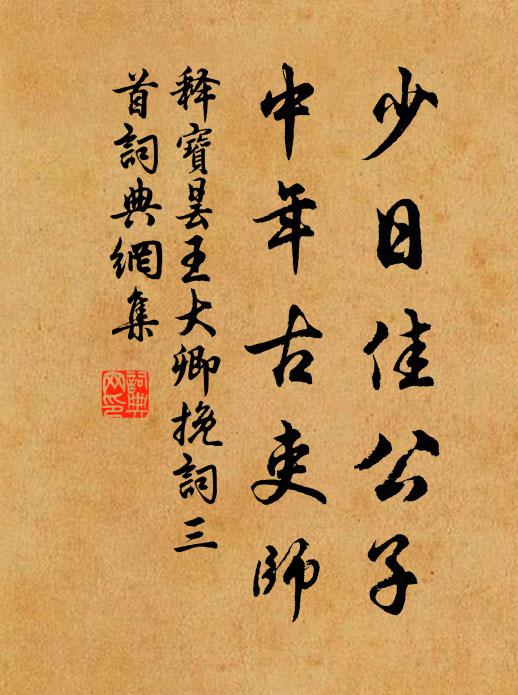 少日佳公子
中年古吏師
释寶昙王大卿挽詞三
首詞典網集
詞典
网印